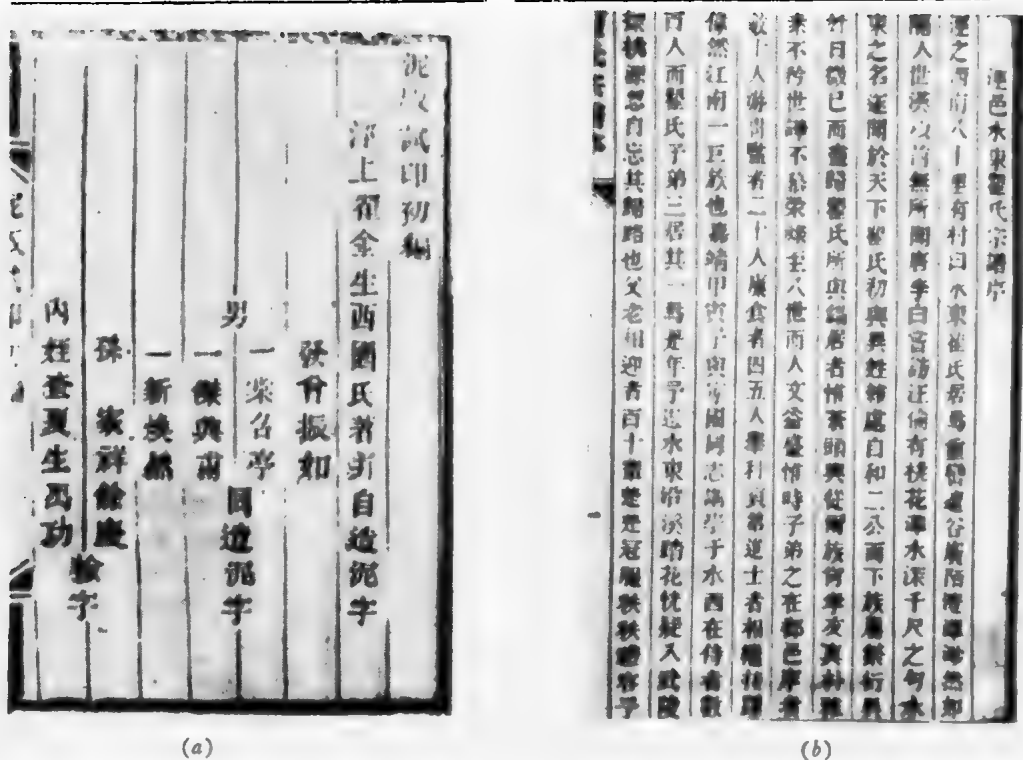 泥版試印初編
涇上翟金生西園氏著并自造泥字
發曾振如
男
一棠召亭
一傑興甫
一新煥然
同造泥字
孫 家祥餘慶
內姪查夏生禹功
字
(a)
涇邑水東翟氏宗譜序
涇之西南八十里有村曰水東翟氏居焉重巒邃谷廣陌然
人世漢以前無所聞唐李白嘗訪汪倫有桃花潭水深千尺之句水
東之名遂聞於天下翟氏初與異姓錯處自和二公而下族屬繁衍異
姓日微已而盡歸翟氏所與錯居者惟蒼頭與從爾族尚孝友真朴雅
來不矜世譁不慕榮祿至八世而人文益盛惟時子弟之在郡邑庠者
數十人游南者二十人廩食者四五人舉科貢第進士者相繼
偉然江南一巨族也嘉靖甲寅予與寧國同志講學于水西在侍者數
百人而翟氏子弟三居其一焉是年予過水東沿溪踏花恍疑入武陵
探桃源忽自忘其歸路也父老相迎者百十輩楚楚冠服秩秩禮容予
(b)